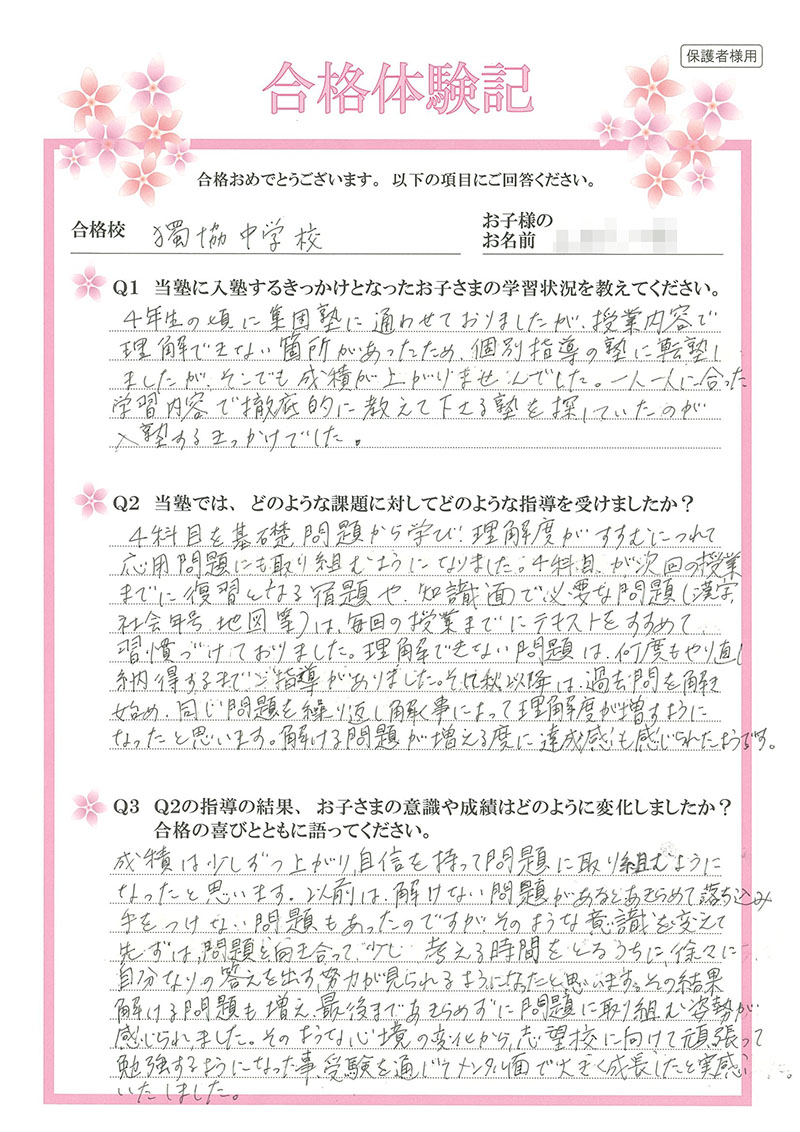 保護者様用
合格体験記
合格おめでとうございます。以下の項目にご回答ください。
合格校 獨協中学校
お子様の
お名前
Q1 当塾に入塾するきっかけとなったお子さまの学習状況を教えてください。
4年生の頃に集団塾に通わせておりましたが、授業内容で
理解できない箇所があったため、個別指導の塾に転塾し
ましたが、そこでも成積が上がりませんでした。一人一人に合った
学習内容で徹底的に教えて下さる塾を探していたのが
入塾するきっかけでした。
Q2 当塾では、どのような課題に対してどのような指導を受けましたか？
4科目を基礎問題から学び、理解度がすすむにつれて
応用問題にも取り組むようになりました。4科目が次回の授業
までに復習となる宿題や、知識面で必要な問題（漢字、
社会年号、地図等）は、毎回の授業までにテキストをすすめて
習慣づけておりました。理解できない問題は、何度もやり直し
納得するまでご指導がありました。そして秋以降は、過去問を解き
始め、同じ問題を繰り返し解く事によって理解度が増すように
なったと思います。解ける問題が増える度に達成感も感じられたようです。
Q3 Q2の指導の結果、お子さまの意識や成績はどのように変化しましたか？
合格の喜びとともに語ってください。
成積は少しずつ上がり、自信を持って問題に取り組むように
なったと思います。以前は、解けない問題があるとあきらめて落ち込み
手をつけない問題もあったのですが、そのような意識を変えて
先ずは、問題と向き合って、少し考える時間をとるうちに、徐々に
自分なりの答えを出す努力が見られるようになったと思います。その結果
解ける問題も増え、最後まであきらめずに問題に取り組む姿勢が
感じられました。そのような心境の変化から、志望校に向けて頑張って
勉強するようになった事、受験を通じてメンタル面で大きく成長したと実感
いたしました。